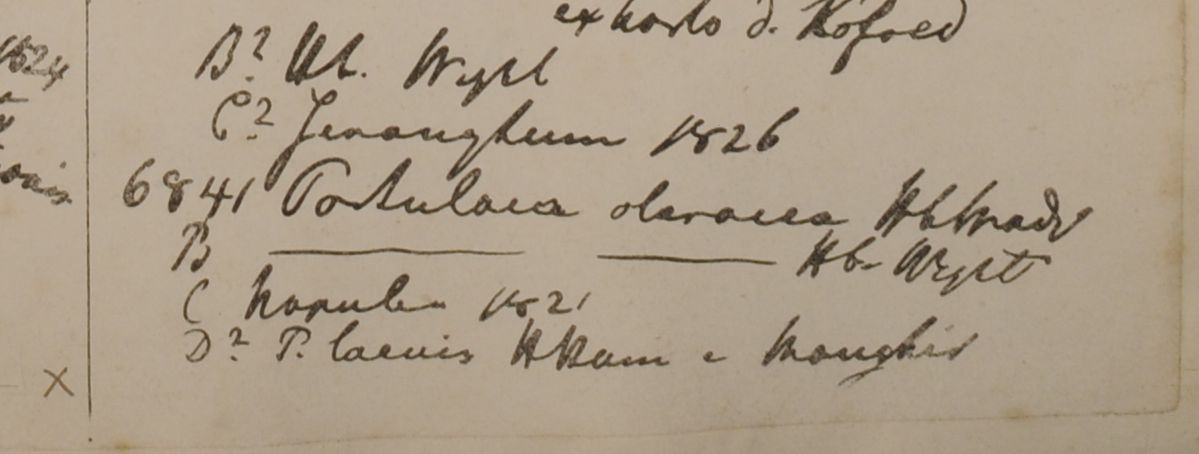 1824
ex horto d. Kofoed
B? Hb. Wight
C? Jenanghuum 1826
6841 Portulaca oleracea Hb Madr
B Hb. Wight
C Napulea 1821
D? P. laevis HHam e Monghir
X